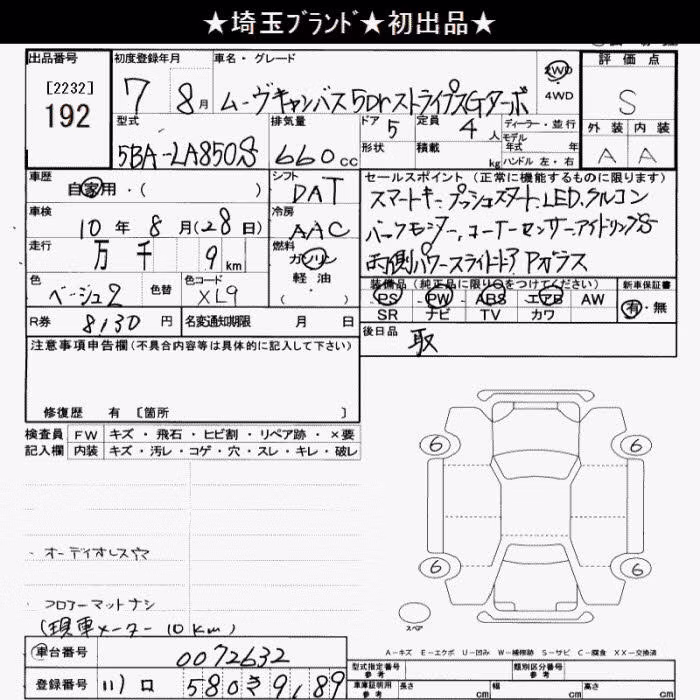 ★埼玉ﾌﾞﾗﾝﾄﾞ★初出品★
出品番号
[2232]
192
初度登録年月
7 8月
車名・グレード
ムーヴキャンバス5DrストライプスGターボ
2WD
4WD
評価点
S
外装 内装
A A
型式
5BA-LA850S
排気量
660cc
ドア 5
形状
定員 4人
積載 kg
ディーラー・並行
モデル
年式 年
ハンドル 左・右
車歴
自家用・( )
シフト
DAT
車検
10年8月(28日)
冷房
AAC
走行
万千9km
燃料
ガソリン
軽油
( ・ )
色
ベージュ2
色替
色コード
XL9
R券 8130円
名変通知期限 月 日
セールスポイント(正常に機能するものに限ります)
スマートキー、プッシュスタート、LED、クルコン
バックモニター、コーナーセンサー、アイドリングS
両側パワースライドドア Pガラス
装備品(純正品に限り○をつけてください)
PS PW ABS エアB AW
SR ナビ TV カワ
新車保証書
有・無
後日品
取
注意事項申告欄(不具合内容等は具体的に記入して下さい)
修復歴 有 〔箇所 〕
検査員 FW キズ・飛石・ヒビ割・リペア跡・×要
記入欄 内装 キズ・汚レ・コゲ・穴・スレ・キレ・破レ
6 6
6 6
スペア
・オーディオレス
フロアーマットナシ
(現車メーター 10km)
A-キズ E-エクボ U-凹み W-補修跡 S-サビ C-腐食 XX-交換済
車台番号 0072632
登録番号 川口 580 き 9189
型式指定番号
参考
類別区分番号
参考
車庫証明用
参考
長さ cm
幅 cm
高さ cm